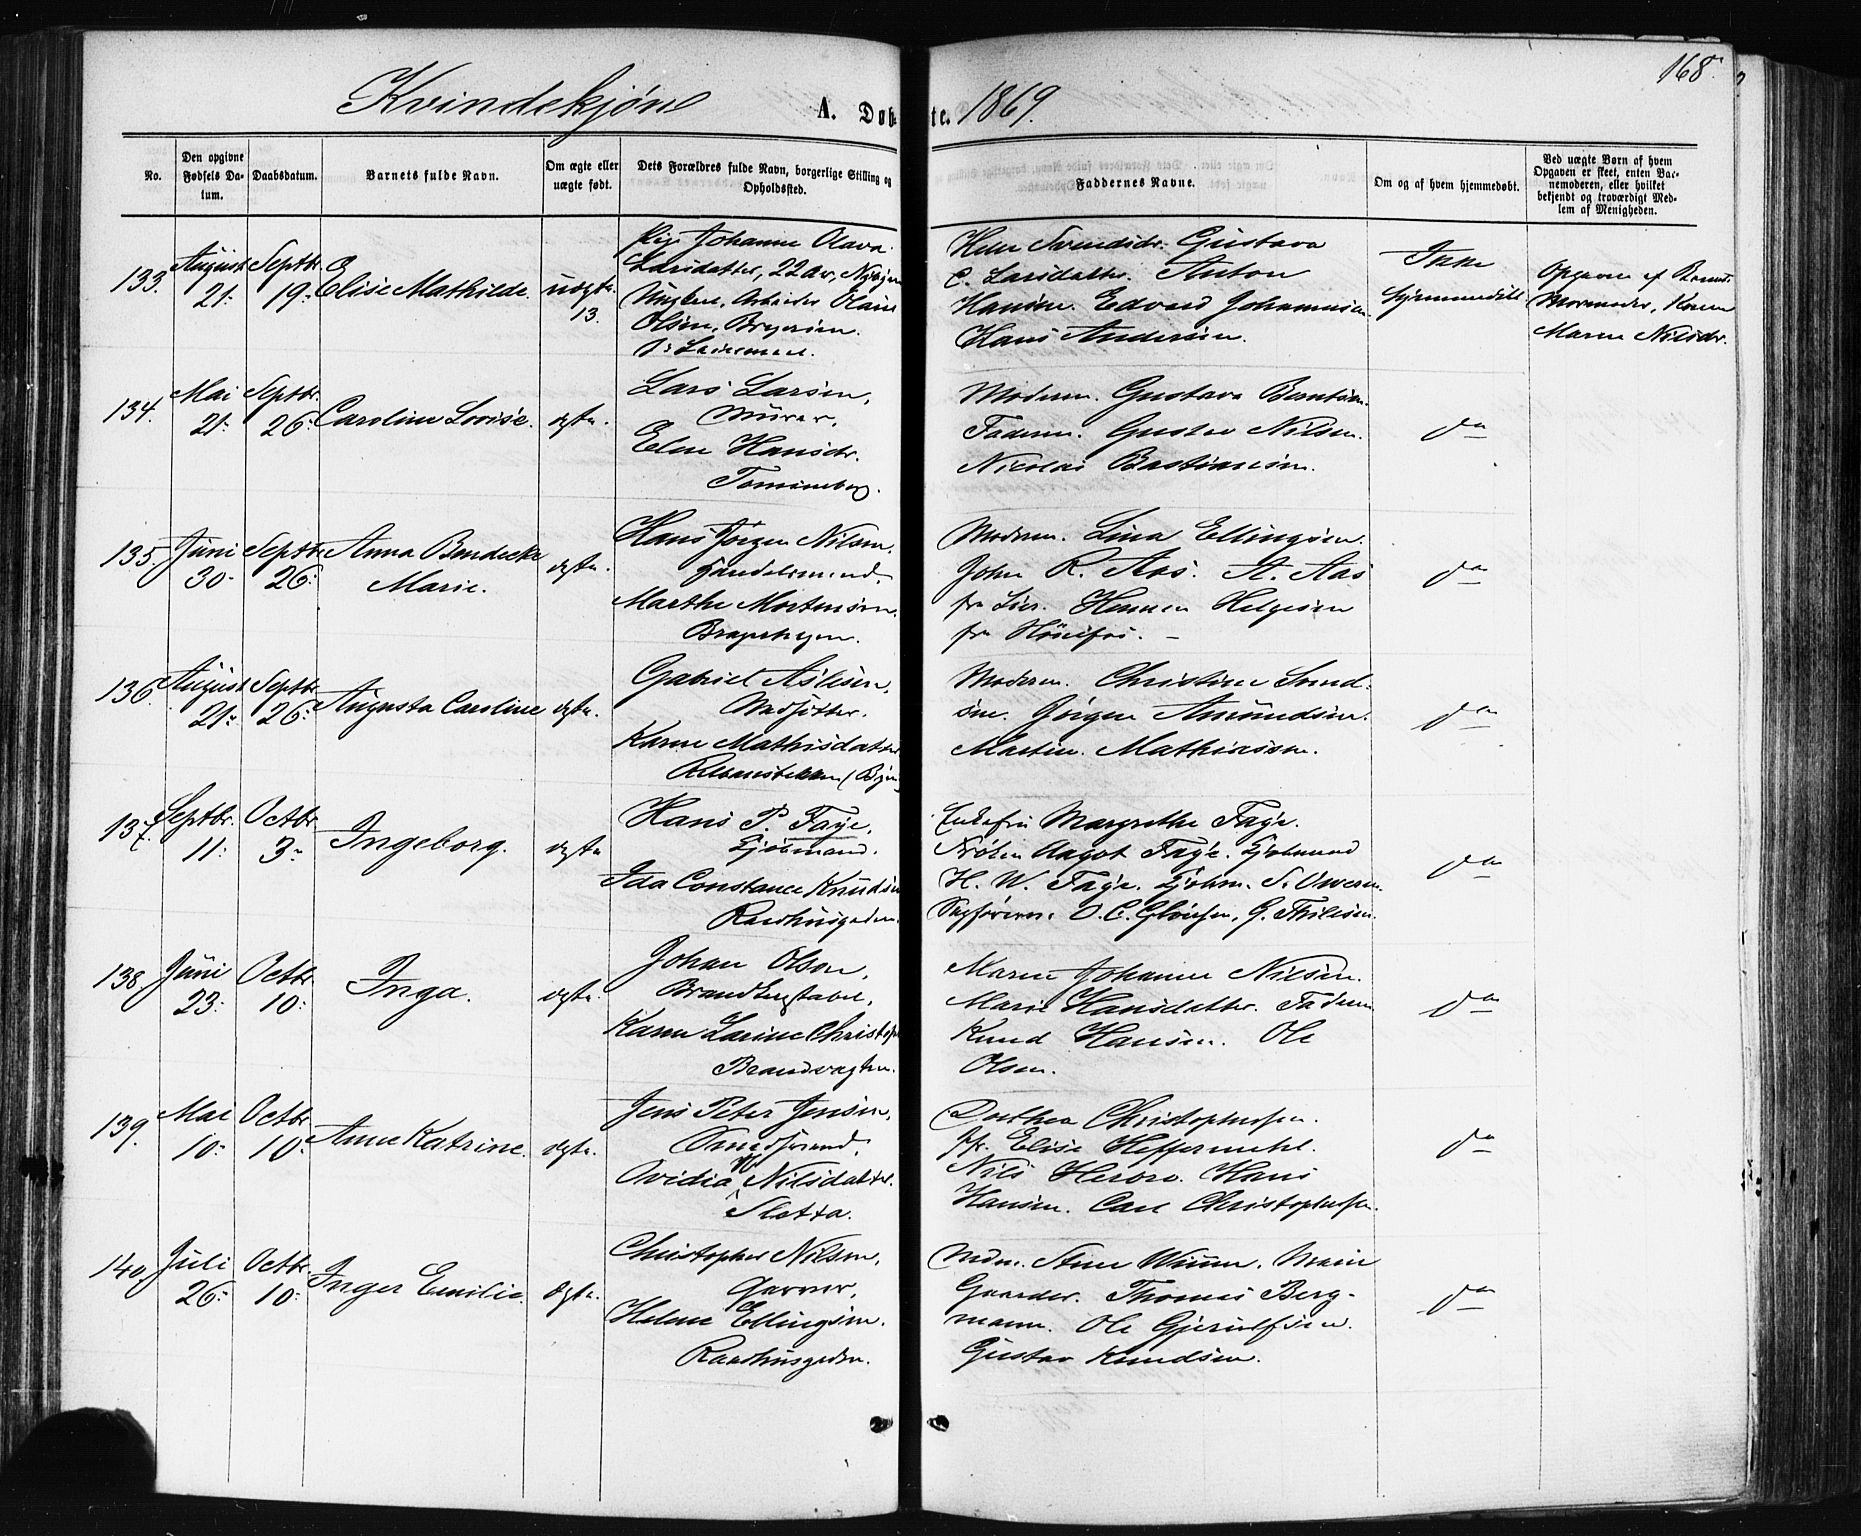 168.
Kvindekjøn A. Døbte. 1869.
No.
Den opgivne Fødsels Datum.
Daabsdatum.
Barnets fulde Navn.
Om ægte eller uægte født.
Dets Forældres fulde Navn, borgerlige Stilling og Opholdssted.
Faddernes Navne.
Om og af hvem hjemmedøbt.
Ved uægte Børn af hvem Opgaven er skeet, enten Barnemoderen, eller hvilket bekjendt og troværdigt Medlem af Menigheden.
133. August 21. Septbr. 19. Elise Mathilde. uægte. 13.
Pige Johanne Olava
Larsdatter, 22 Aar,
Ungkarl, Arbeider Olaus
Olsen,
Gustava
C. Larsdatter. Anton
Hansen. Edvard Johannesen.
Hans Andersen.
Ikke
hjemmedøbt.
Opgaven af Barnets
Mormoder, Karen
Maren Nilsdr.
134. Mai 21. Septbr. 26. Caroline Lovise. ægte.
Lars Larsen,
Murer,
Elen Hansdr.
Moderen. Gustava Berntsen.
Faderen. Gustav Nilsen.
Nicolai Bastiansen.
do
135. Juni 30. Septbr. 26. Anna Bendecke
Marie. ægte.
Hans Jørgen Nilsen.
Handelsmand,
Marthe Mortensen.
Moderen. Lina Ellingsen.
John R. Aas. A. Aas
fra Lier. Helgesen
fra Hönefos. –
do
136. August 21. Septbr. 26. Augusta Caroline ægte.
Gabriel Aslesen,
Karen Mathisdatter
Moderen. Christine Svend-
sen. Jörgen Amundsen.
Martin Mathiasen.
do
137. Septbr. 11. Octbr. 3. Ingeborg. ægte
Hans P. Faye,
Kjøbmand.
Ida Constance Knudsen
Raadhusgaden.
Enkefru Margrethe Faye.
Frøken Aagot Faye. Kjøbmand
H. W. Faye. Kjøbm.
Sagfører
do
138. Juni 23. Octbr. 10. Inga. ægte.
Johan Olsen,
Brandkonstabel,
Karen Larine Christoph
Brandvagten.
Maren Johanne Nilsen.
Marie Hansdatter. Faderen
Knud Hansen. Ole
Olsen.
do
139. Mai 10. Octbr. 10. Anne Katrine. ægte.
Jens Peter Jensen,
Smedsvend,
Ovidia M Nilsdatter.
Sletta.
Dorthea Christophersen.
Elise Heffermehl.
Nils Hans
Hansen. Carl Christophersen.
do
140. Juli 26. Octbr. 10. Inger Emilie. ægte.
Christopher Nilsen,
Garver,
Helene Ellingsen.
Raadhusgaden.
Mdm. Marie
Gaarder. Thomas Berg-
mann. Ole Gjerulfsen.
Gustav Knudsen.
do